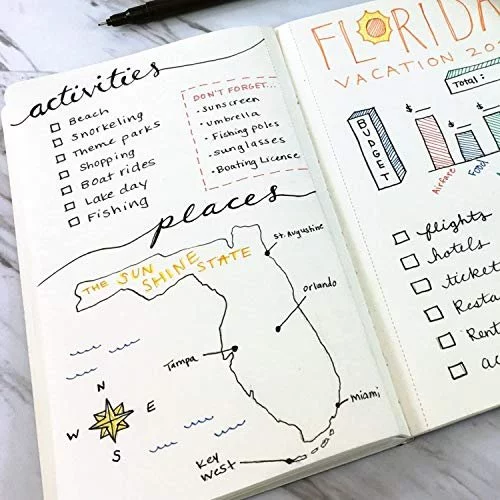 activities
Beach
Snorkeling
Theme parks
Shopping
Boat rides
Lake day
Fishing
DON'T FORGET...
• Sunscreen
• Umbrella
• Fishing poles
• Sunglasses
• Boating License
places
THE SUN SHINE STATE
St. Augustine
Orlando
Tampa
Miami
Key West
N
W E
S
FLORIDA
VACATION 20
Total:
BUDGET
$
$
Airfare
Food
flights
hotels
ticket
Resta
Rent